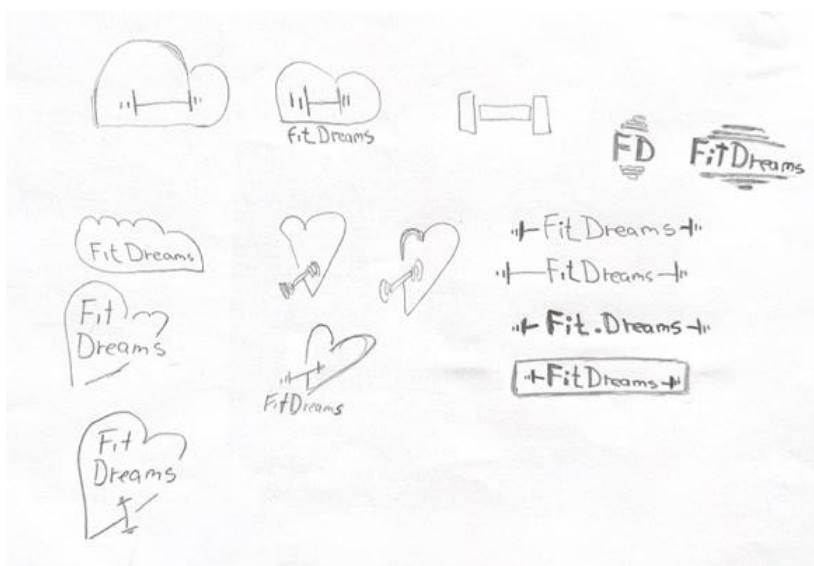 Fit Dreams
FD
FitDreams
Fit Dreams
Fit Dreams
Fit Dreams
Fit.Dreams
FitDreams
Fit
Dreams
FitDreams
Fit
Dreams